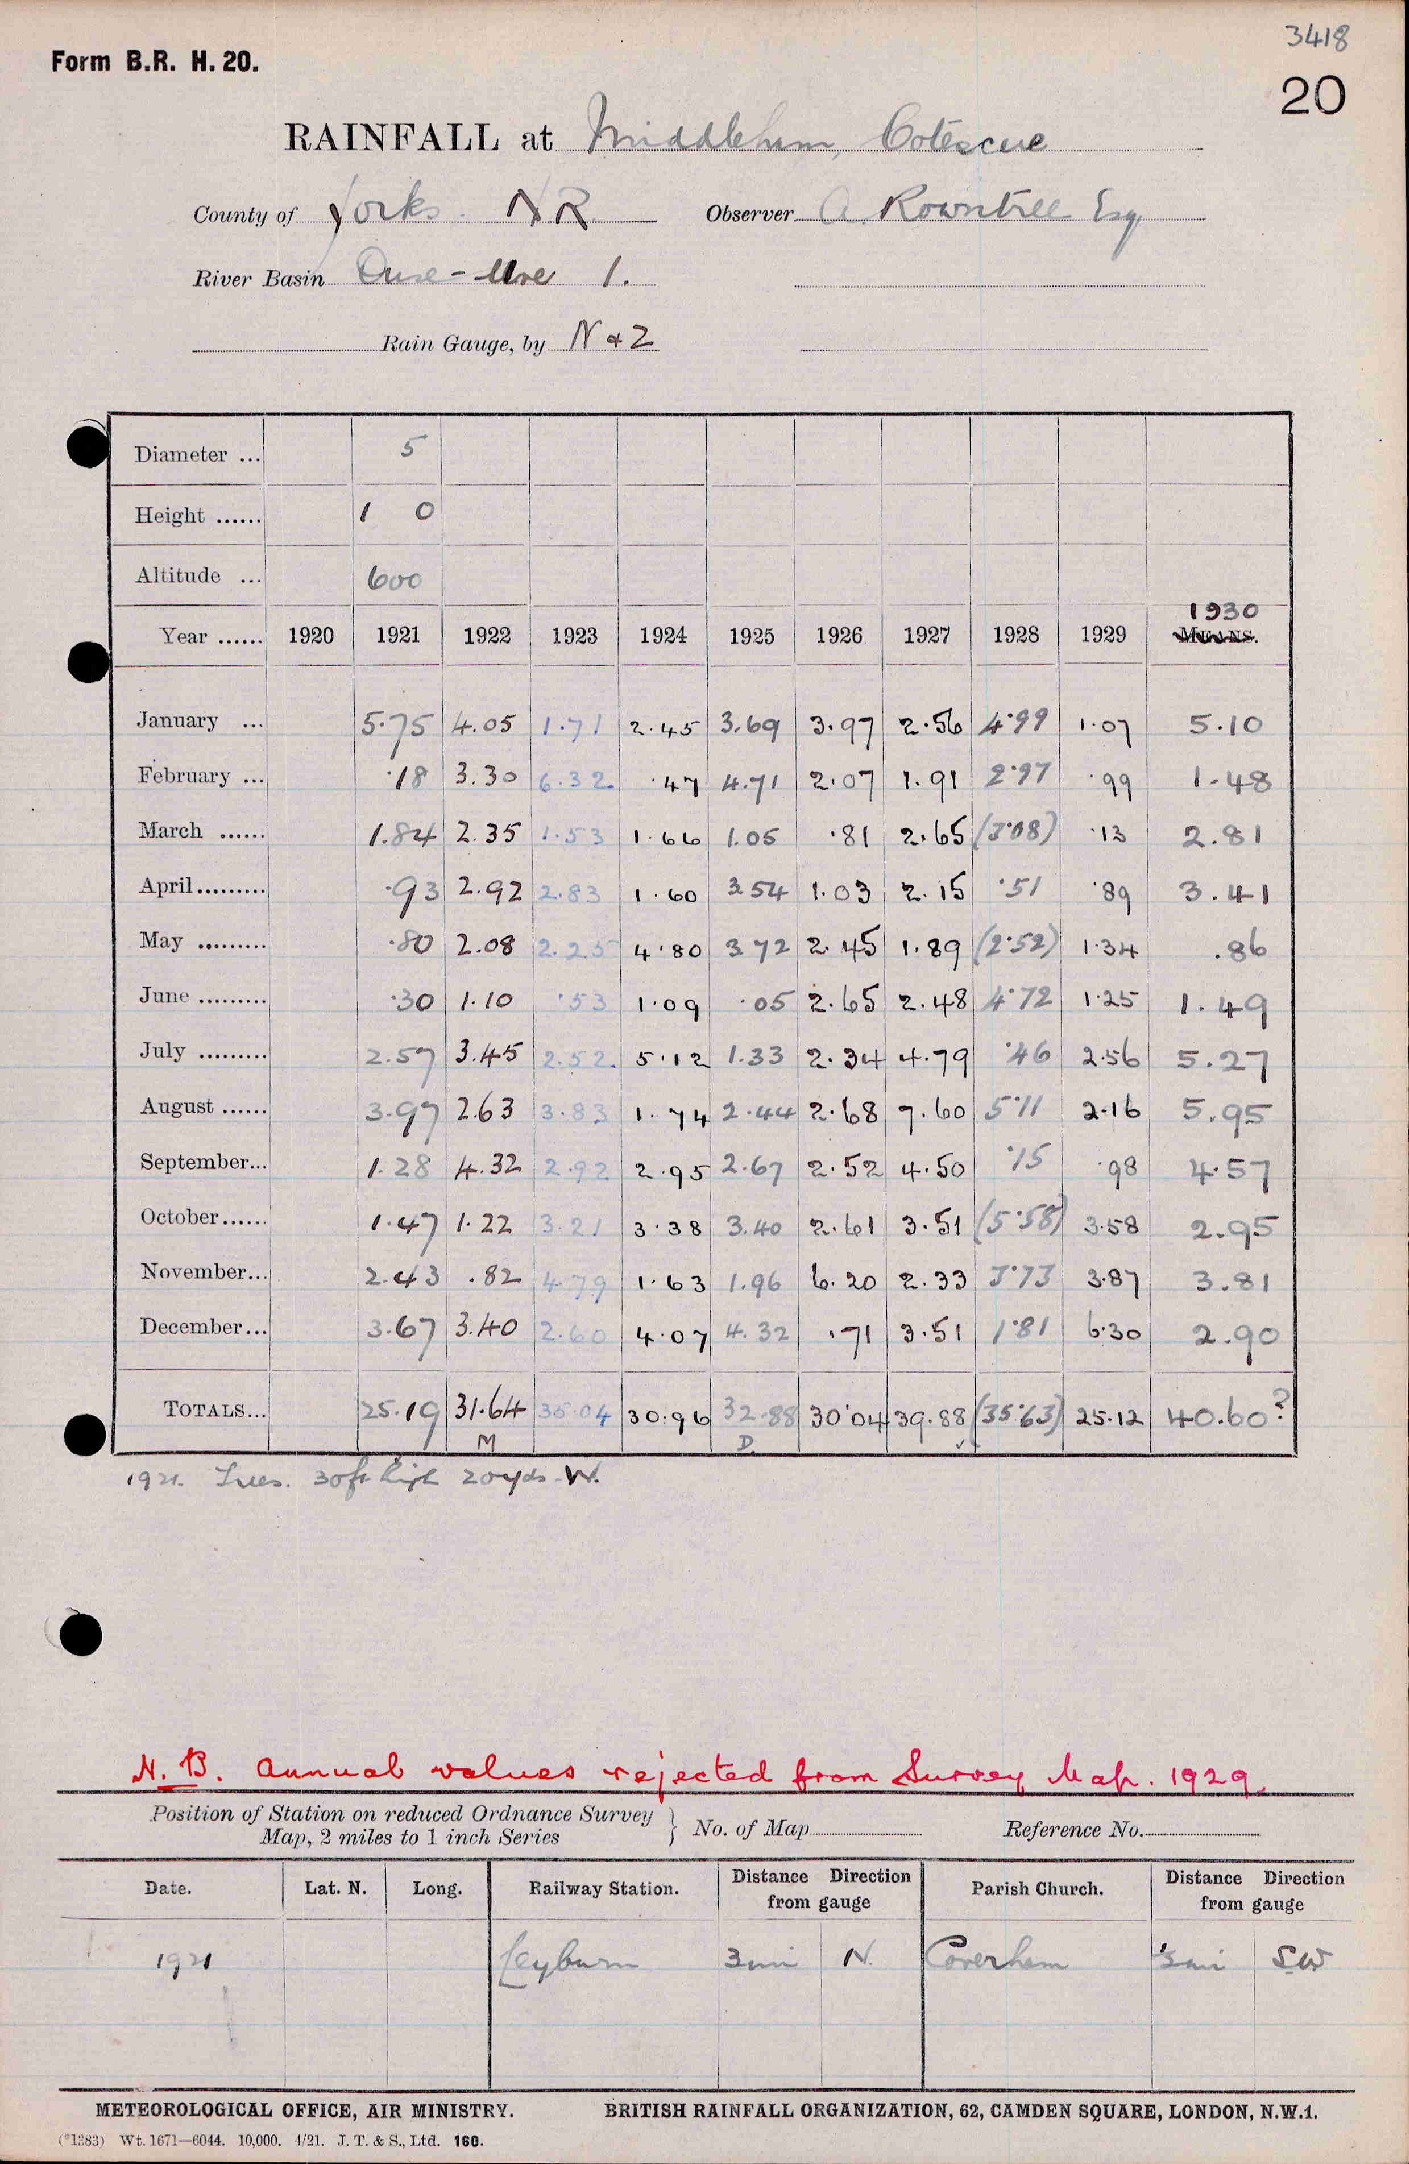 3418
Form B.R. H. 20.
20
RAINFALL at Middleham, Cotescue
County of Yorks. NR Observer A. Rowntree Esq
River Basin Ouse - Ure 1.
Rain Gauge, by N & Z
Diameter ... 5
Height ...... 1 0
Altitude ... 600
1930
Year ...... 1920 1921 1922 1923 1924 1925 1926 1927 1928 1929 MEANS.
January ... 5.75 4.05 1.71 2.45 3.69 3.97 2.56 4.99 1.07 5.10
February ... .18 3.30 6.32 .47 4.71 2.07 1.91 2.97 .99 1.48
March ...... 1.84 2.35 1.53 1.66 1.05 .81 2.65 (3.08) .13 2.81
April......... .93 2.92 2.83 1.60 3.54 1.03 2.15 .51 .89 3.41
May ......... .80 2.08 2.25 4.80 3.72 2.45 1.89 (2.52) 1.34 .86
June ......... .30 1.10 .53 1.09 .05 2.65 2.48 4.72 1.25 1.49
July ......... 2.57 3.45 2.52 5.12 1.33 2.34 4.79 .46 2.56 5.27
August ...... 3.97 2.63 3.83 1.74 2.44 2.68 7.60 5.11 2.16 5.95
September... 1.28 4.32 2.92 2.95 2.67 2.52 4.50 .15 .98 4.57
October...... 1.47 1.22 3.21 3.38 3.40 2.61 3.51 (5.58) 3.58 2.95
November... 2.43 .82 4.79 1.63 1.96 6.20 2.33 3.73 3.87 3.81
December... 3.67 3.40 2.60 4.07 4.32 .71 3.51 1.81 6.30 2.90
TOTALS... 25.19 31.64 35.04 30.96 32.88 30.04 39.88 (35.63) 25.12 40.60?
M D.
1921. Trees. 30ft high 20yds W.
N.B. Annual values rejected from Survey Map. 1929.
Position of Station on reduced Ordnance Survey Map, 2 miles to 1 inch Series } No. of Map Reference No.
Date. Lat. N. Long. Railway Station. Distance Direction from gauge Parish Church. Distance Direction from gauge
1921 Leyburn 3mi N. Coverham SW
METEOROLOGICAL OFFICE, AIR MINISTRY. BRITISH RAINFALL ORGANIZATION, 62, CAMDEN SQUARE, LONDON, N.W.1.
(*1383) Wt. 1671—6044. 10,000. 4/21. J. T. & S., Ltd. 160.